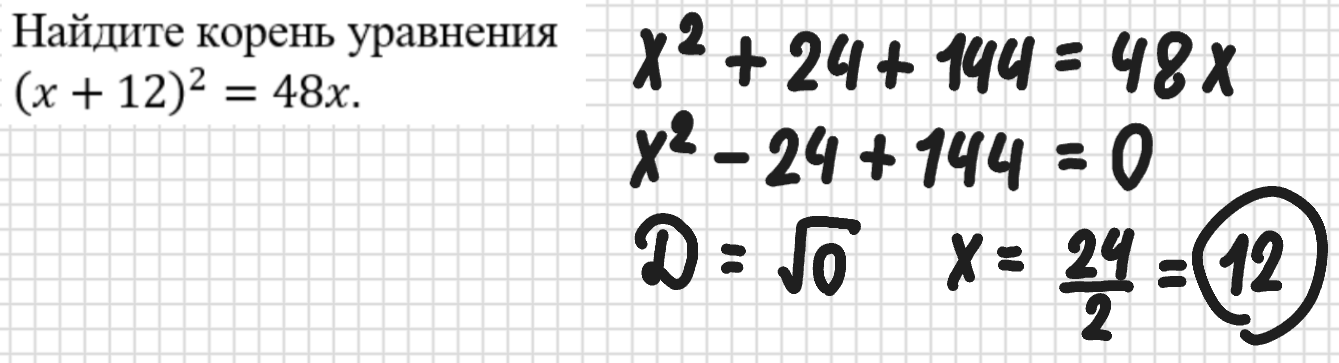 Найдите корень уравнения
(x + 12)² = 48x.
x² + 24 + 144 = 48x
x² - 24 + 144 = 0
D = √0 x = 24/2 = 12